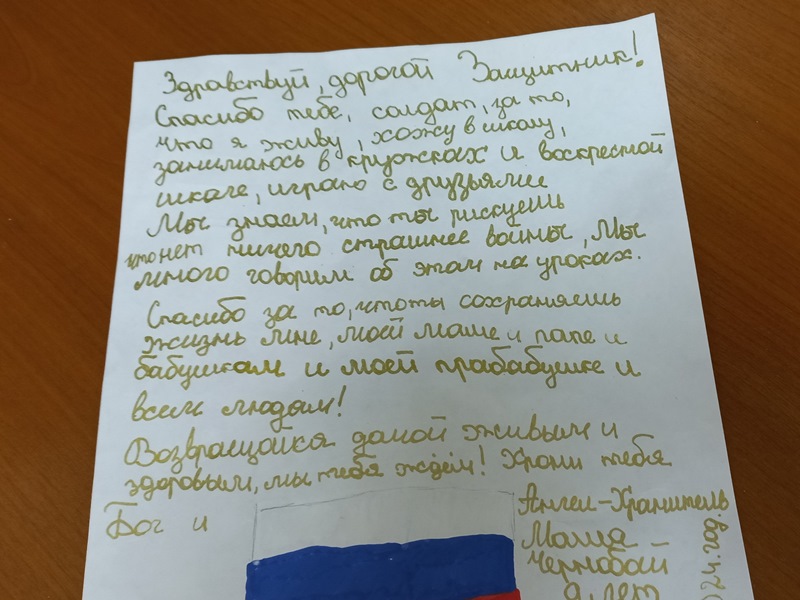 Здравствуй, дорогой Защитник!
Спасибо тебе, солдат, за то,
что я живу, хожу в школу,
занимаюсь в кружках и воскресной
школе, играю с друзьями
Мы знаем, что ты рискуешь
что нет ничего страшнее войны, Мы
много говорим об этом на уроках.
Спасибо за то, что ты сохраняешь
жизнь мне, моей маме и папе и
бабушкам и моей прабабушке и
всем людям!
Возвращайся домой живым и
здоровым, мы тебя ждём! Храни тебя
Бог и Ангел-Хранитель
Маша
Чернобай
9 лет
024 год.